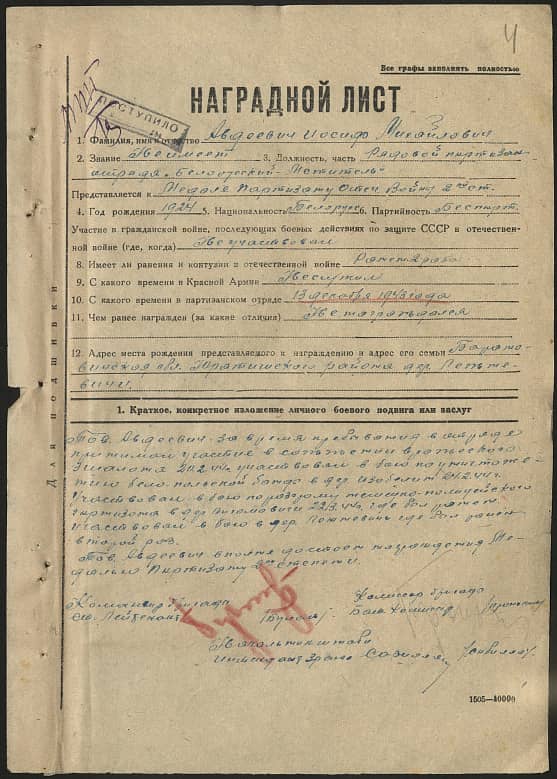 4
Все графы заполнять полностью
ПОСТУПИЛО
НАГРАДНОЙ ЛИСТ
1. Фамилия, имя и отчество Авдоевич Иосиф Михайлович
2. Звание Неимеет 3. Должность, часть Рядовой партизан
отряда „Белорусский Мститель“
Представляется к Медале Партизану Отеч. Войну 2й ст.
4. Год рождения 1924 5. Национальность Белорус 6. Партийность Беспарт.
Участие в гражданской войне, последующих боевых действиях по защите СССР и отечествен-
ной войне (где, когда) Неучаствовал
8. Имеет ли ранения и контузии в отечественной войне Ранен 2 раза
9. С какого времени в Красной Армии Неслужил
10. С какого времени в партизанском отряде 13 декабря 1943 года
11. Чем ранее награжден (за какие отличия) Не награждался
12. Адрес места рождения представляемого к награждению и адрес его семьи
обл. района дер.
Для подшивки
1. Краткое, конкретное изложение личного боевого подвига или заслуг
Тов. Авдоевич за время пребывания в отряде
принимал участие в
эшалона участвовал в бою по уничтоже-
нию бело польской банды в дер.
Участвовал в бою по разгрому немецко-полицейского
гарнизона в дер. где был ранен
участвовал в бою в дер. где был ранен
второй раз.
Тов. Авдоевич вполне достоен награждения Ме-
далью Партизану 2й степени.
Командир бригады
Ст. Лейтенант
Комиссар бригады
Бат. Комиссар
Начальник штаба
1505—10000